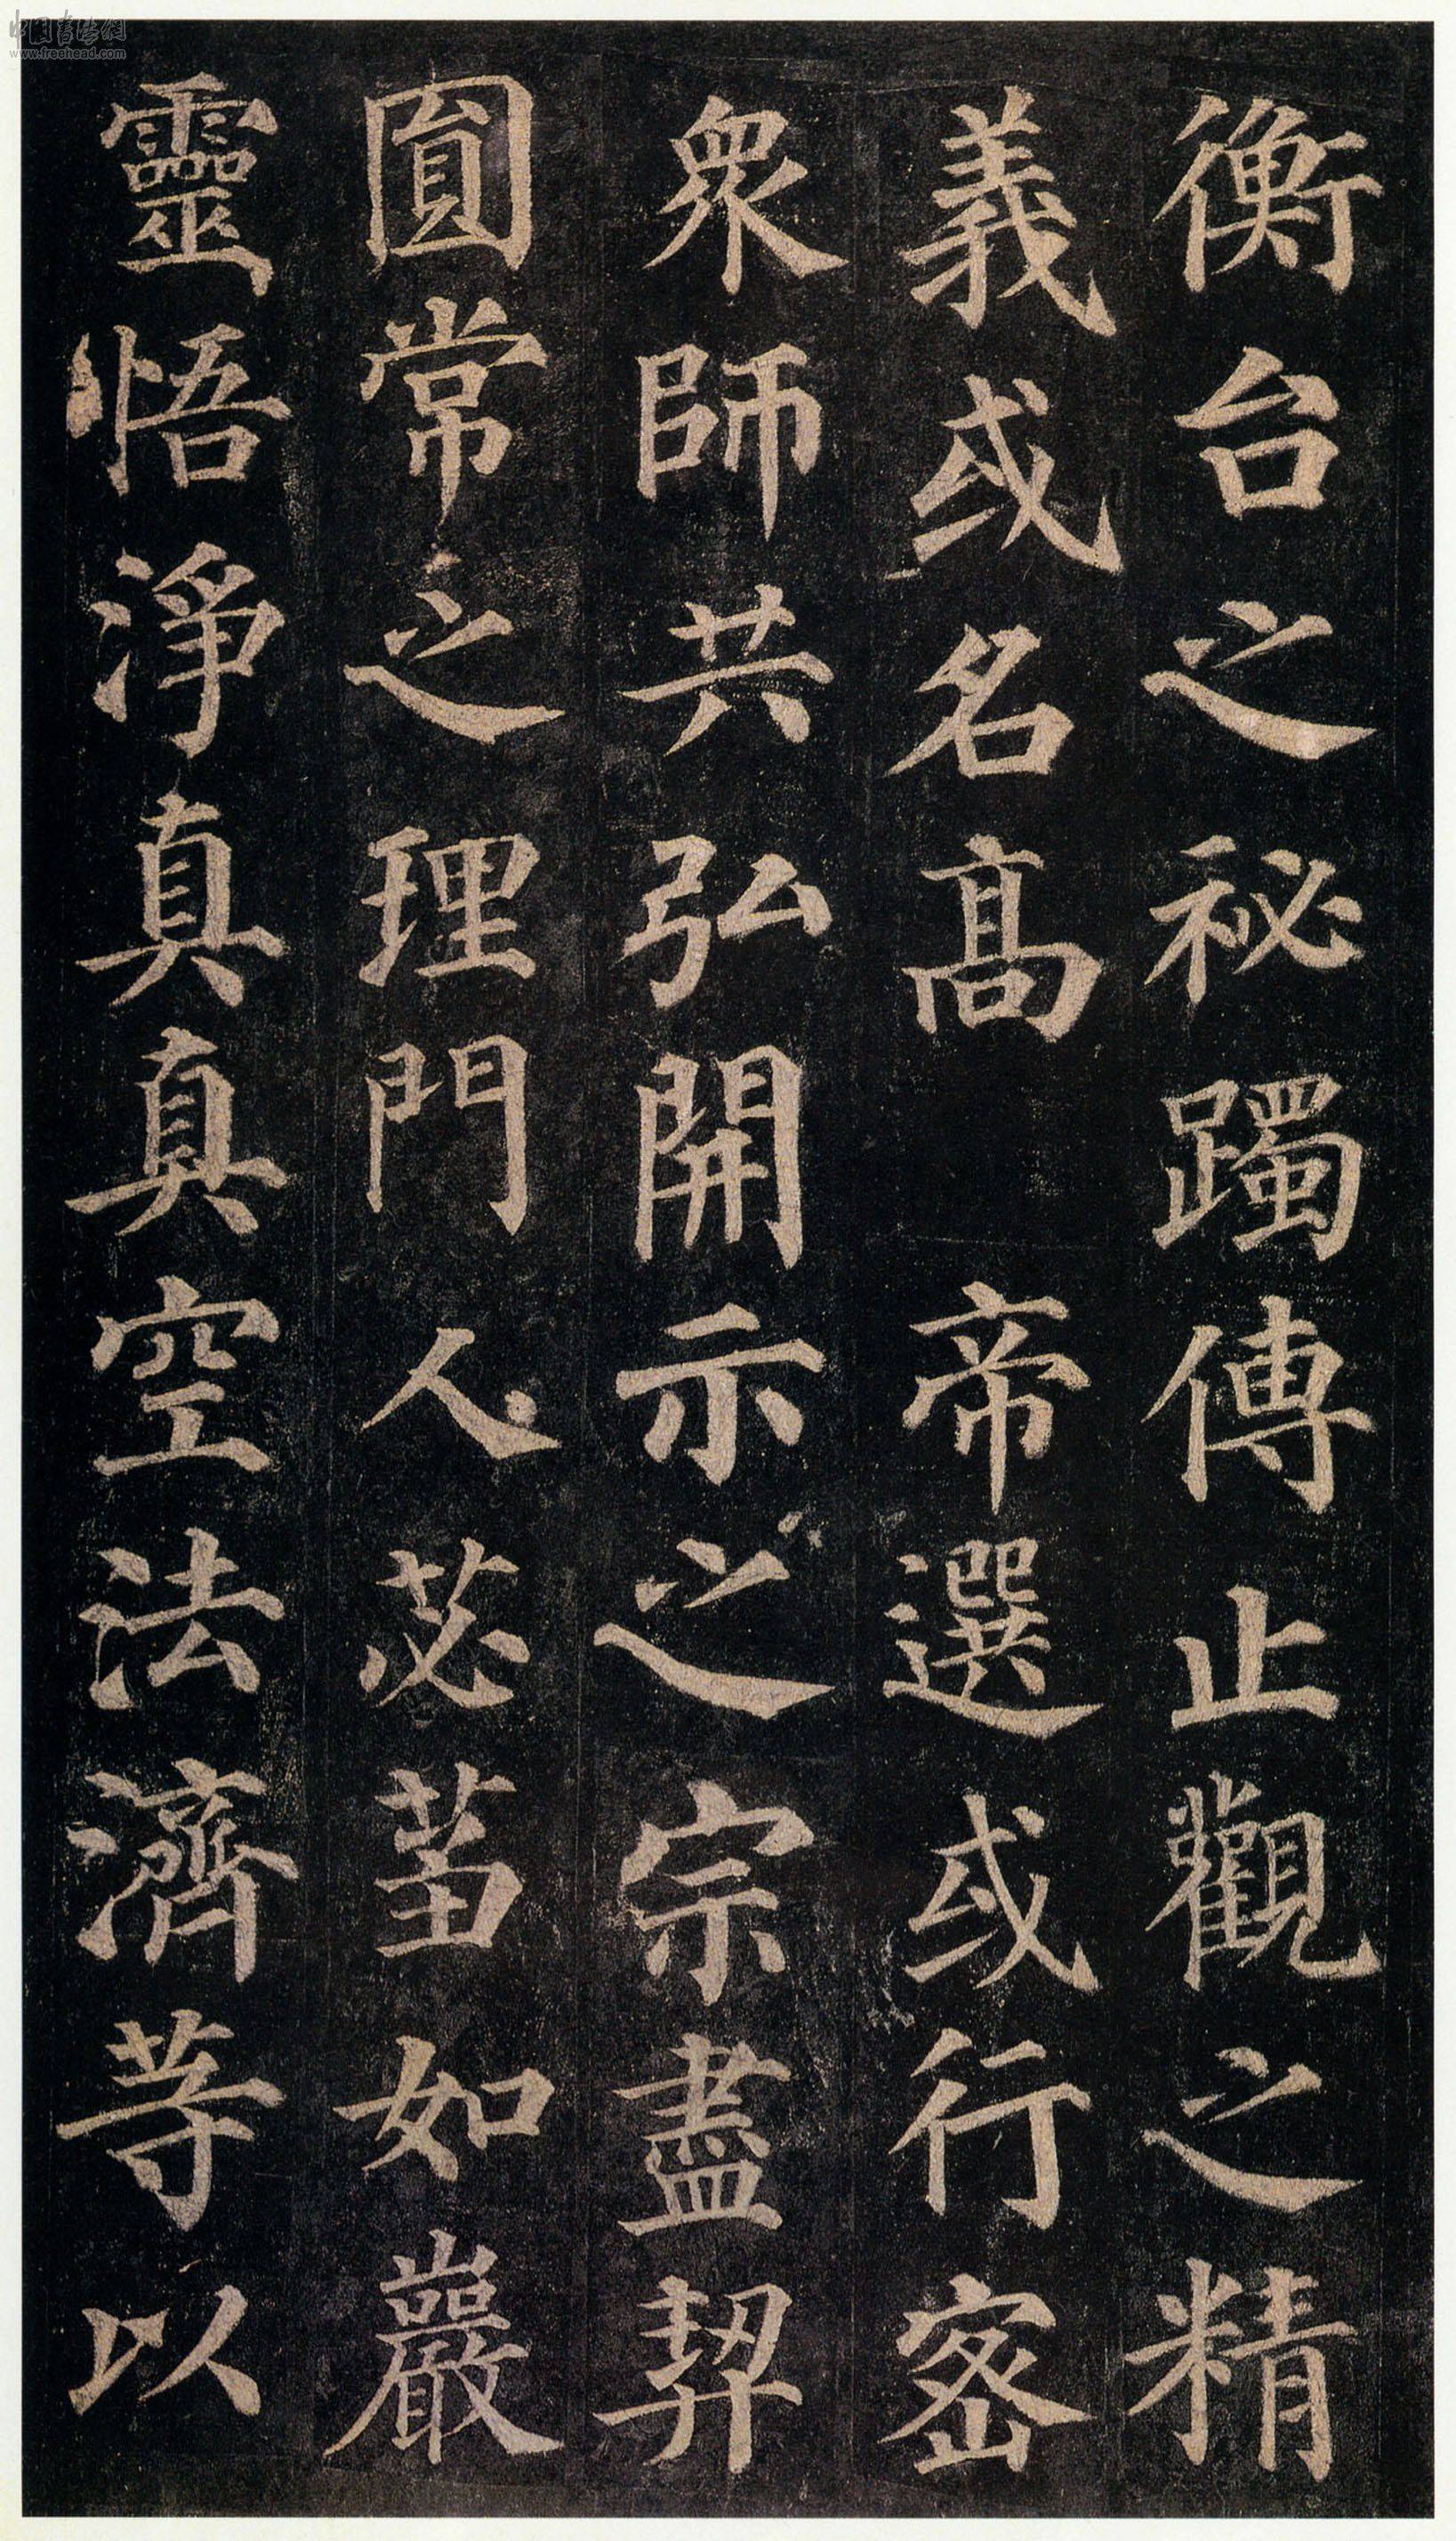 衡台之秘躅傳止觀之精
義或名高 帝選或行密
衆師共弘開示之宗盡契
圓常之理門人苾蒭如巖
靈悟淨真真空法濟等以
中国书法网
www.freehead.com